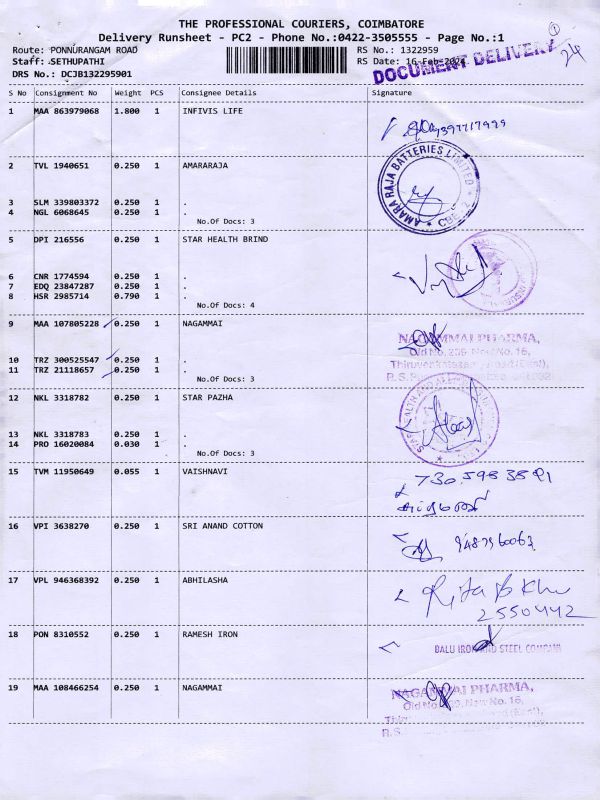 THE PROFESSIONAL COURIERS, COIMBATORE
Delivery Runsheet - PC2 - Phone No.:0422-3505555 - Page No.:1
Route: PONNURANGAM ROAD RS No.: 1322959
Staff: SETHUPATHI RS Date: 16-Feb-2024
DRS No.: DCJB132295901
DOCUMENT DELIVERY
1
24
S No Consignment No Weight PCS Consignee Details Signature
1 MAA 863979068 1.800 1 INFIVIS LIFE
2 TVL 1940651 0.250 1 AMARARAJA
AMARA RAJA BATTERIES LIMITED
CBE-2
3 SLM 339803372 0.250 1 .
4 NGL 6068645 0.250 1 .
No.Of Docs: 3
5 DPI 216556 0.250 1 STAR HEALTH BRIND
6 CNR 1774594 0.250 1 .
7 EDQ 23847287 0.250 1 .
8 HSR 2985714 0.790 1 .
No.Of Docs: 4
9 MAA 107805228 0.250 1 NAGAMMAI
NAGAMMAI PHARMA,
Old No. 239, New No. 16,
10 TRZ 300525547 0.250 1 .
11 TRZ 21118657 0.250 1 .
No.Of Docs: 3
12 NKL 3318782 0.250 1 STAR PAZHA
STAR HEALTH AND
13 NKL 3318783 0.250 1 .
14 PRO 16020084 0.030 1 .
No.Of Docs: 3
15 TVM 11950649 0.055 1 VAISHNAVI
730 598 3891
16 VPI 3638270 0.250 1 SRI ANAND COTTON
9487960063
17 VPL 946368392 0.250 1 ABHILASHA
2550442
18 PON 8310552 0.250 1 RAMESH IRON
BALU IRON AND STEEL COMPANY
19 MAA 108466254 0.250 1 NAGAMMAI
NAGAMMAI PHARMA,
Old No. 239, New No. 16,